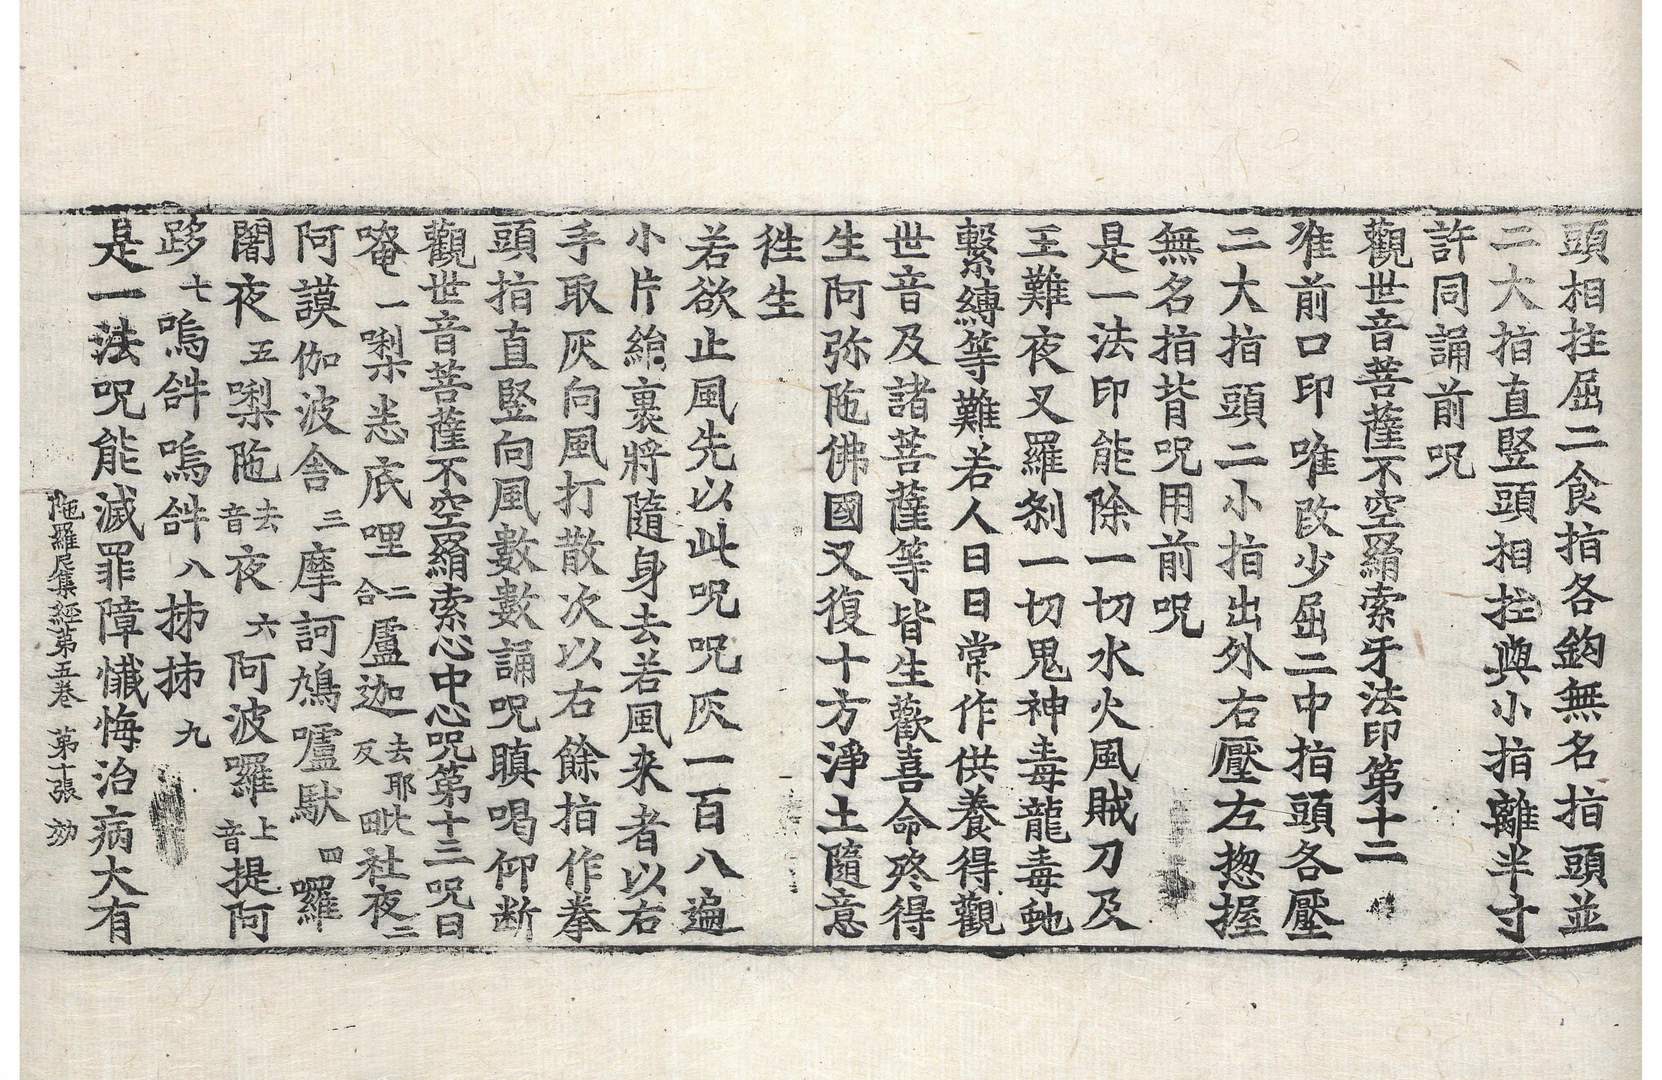 頭相拄屈二食指各鈎無名指頭並
二大指直竪頭相拄與小指離半寸
許同誦前呪
觀世音菩薩不空羂索牙法印第十二
准前口印唯改少屈二中指頭各壓
二大指頭二小指出外右壓左惣握
無名指背呪用前呪
是一法印能除一切水火風賊刀及
王難夜叉羅剎一切鬼神毒龍毒虵
繫縛等難若人日日常作供養得觀
世音及諸菩薩等皆生歡喜命終得
生阿弥陁佛國又復十方淨土隨意
徃生
若欲止風先以此呪呪灰一百八遍
小片緰裹將隨身去若風来者以右
手取灰向風打散次以右餘指作拳
頭指直竪向風數數誦呪瞋喝仰断
觀世音菩薩不空羂索心中心呪第十三呪曰
唵一㗚悉底哩二合盧迦去耶反毗社夜二
阿謨伽波舍三摩訶鳩嚧馱四囉
闍夜五㗚陁去音夜六阿波囉上音提阿
跢七嗚𤙖嗚𤙖八㧊㧊九
是一法呪能滅罪障懺悔治病大有
陁羅尼集經第五卷　第十張　効